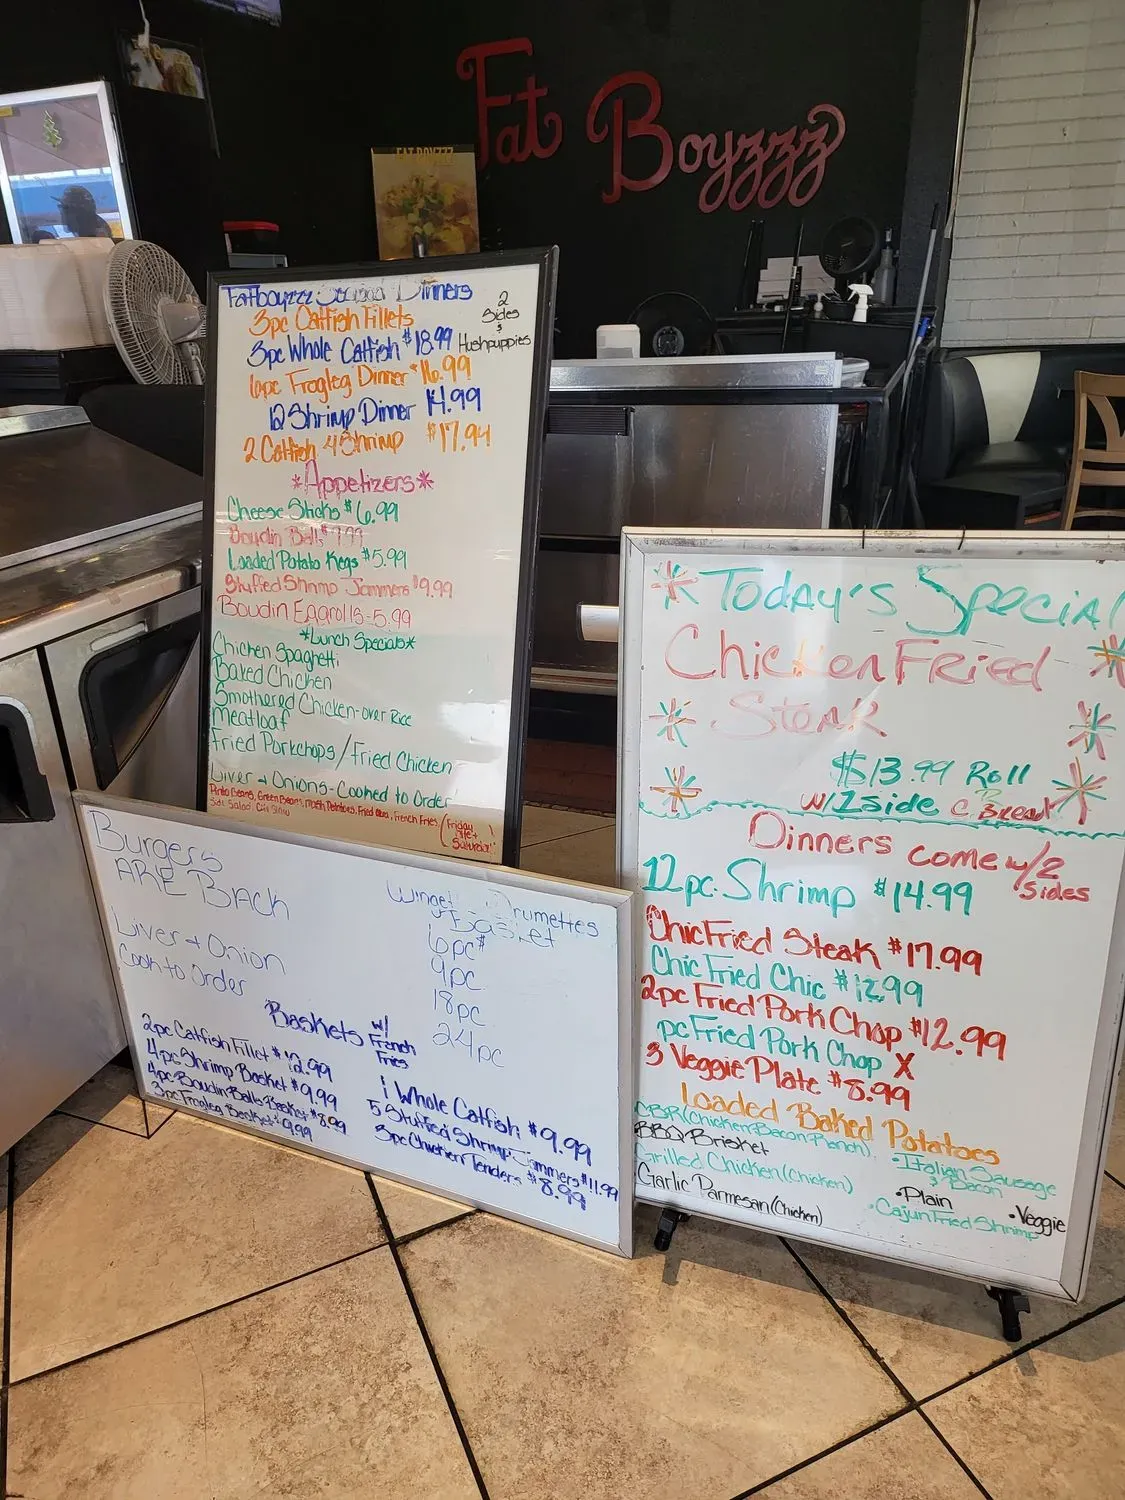 Fat Boyzzz
FAT BOYZZZ
Fatboyzzz Dinners
2 Sides & Hushpuppies
3pc Catfish Fillets
3pc Whole Catfish $18.99
6pc Frogleg Dinner $16.99
12 Shrimp Dinner 14.99
2 Catfish 4 Shrimp $17.94
*Appetizers*
Cheese Sticks $6.99
Boudin Balls $9.99
Loaded Potato Kegs $5.99
Stuffed Shrimp Jammers $9.99
Boudin Eggrolls-5.99
*Lunch Specials*
Chicken Spaghetti
Baked Chicken
Smothered Chicken-over Rice
Meatloaf
Fried Porkchops/Fried Chicken
Liver + Onions-Cooked to Order
Pinto Beans, Green Beans, Mash Potatoes, Fried Okra, French Fries
Side Salad,
(Friday
Saturday
Burgers
ARE BAck
Liver + Onion
Cook to Order
Drumettes
Basket
6pc $
9pc
18pc
24pc
Baskets w/ French Fries
2pc Catfish Fillet $12.99
4pc Shrimp Basket $9.99
4pc Boudin Balls Basket $8.99
3pc Frogleg Basket $9.99
1 Whole Catfish $9.99
5 Stuffed Shrimp Jammers $11.99
3pc Chicken Tenders $8.99
Today's Special
Chicken Fried
Steak
$13.99 Roll
w/1side C Bread
Dinners come w/2 Sides
12pc. Shrimp $14.99
Chic Fried Steak $17.99
Chic Fried Chic $12.99
2pc Fried Pork Chop $12.99
pc Fried Pork Chop X
3 Veggie Plate $8.99
Loaded Baked Potatoes
CBR(Chicken Bacon Ranch)
BBQ Brisket
Grilled Chicken (Chicken)
Garlic Parmesan (Chicken)
•Italian Sausage
& Bacon
•Plain
•Veggie
•Cajun Fried Shrimp